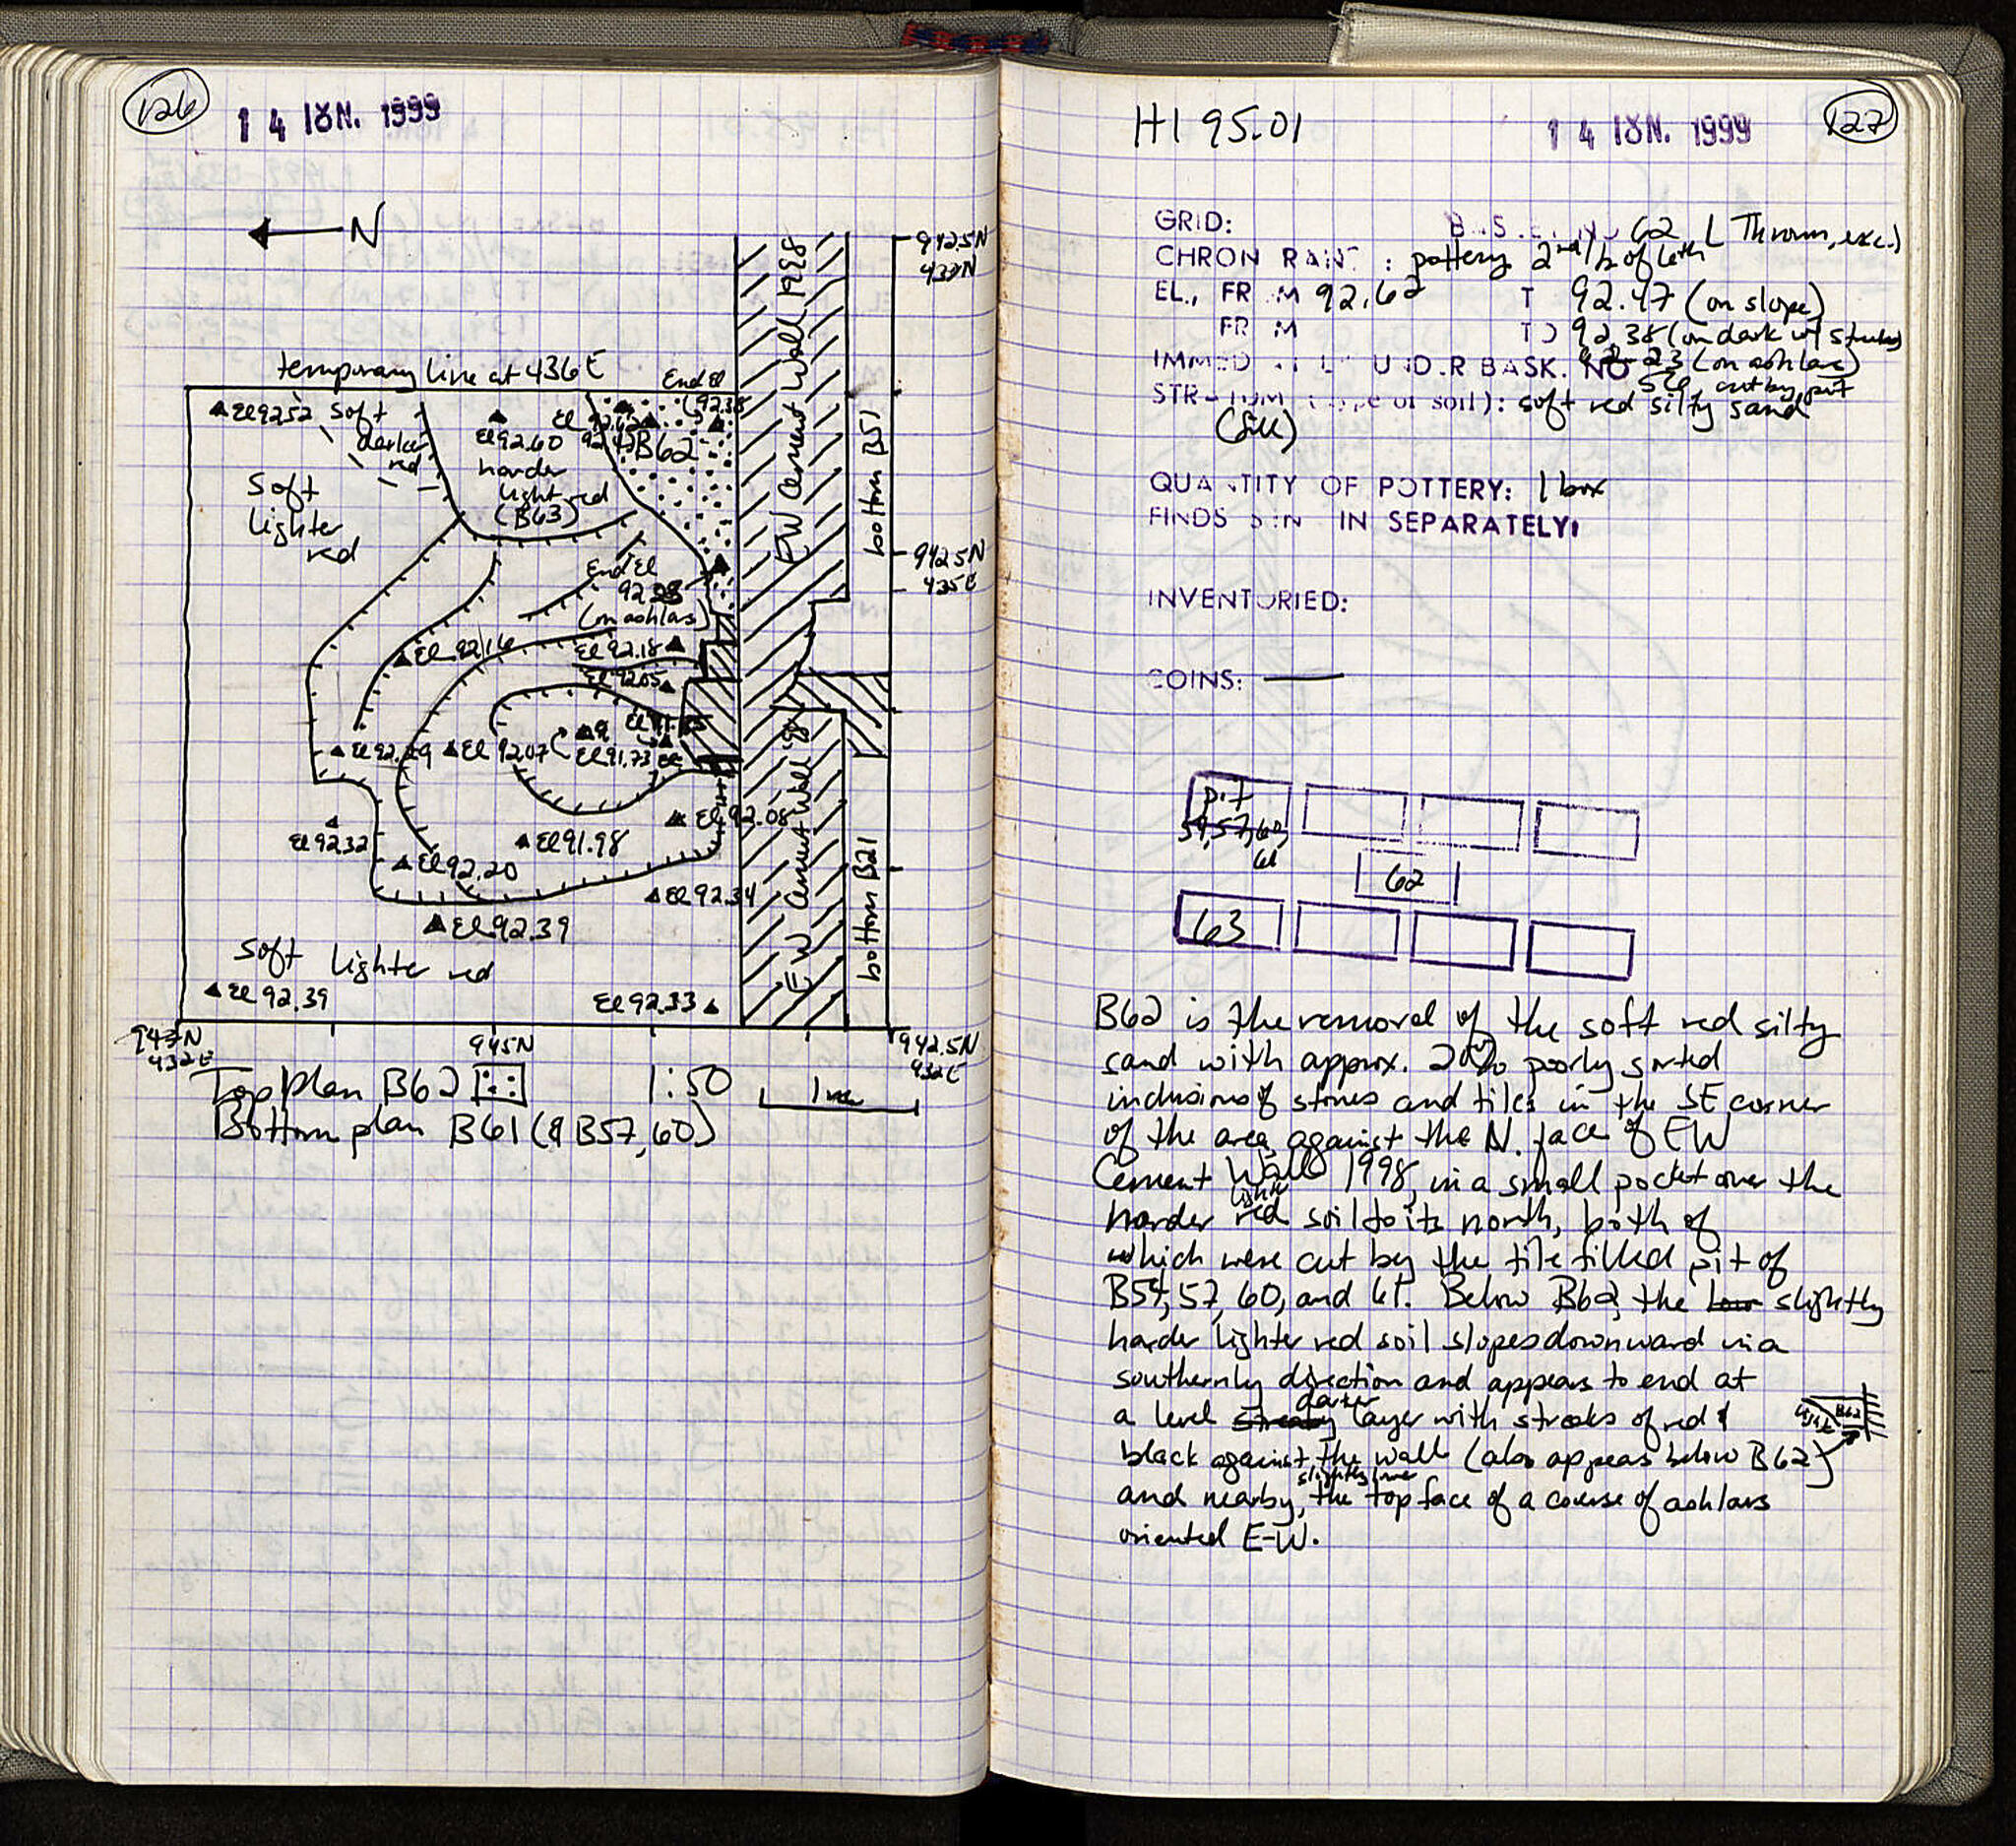 126
14 ΙΟΥΝ. 1999
N
942.5N
437N
EW Cement Wall 1998
temporary line at 436E
End El
92.38
El 92.52
soft
darker
red
El 92.60
harder
light red
(B63)
El 92.62
B62
soft
lighter
red
bottom B51
942.5N
435E
End El
92.23
(on ashlars)
El 92.16
El 92.18
El 92.05
El 92.29
El 92.07
El 91.73
El 92.32
El 91.98
El 92.08
El 92.20
El 92.34
El 92.39
EW Cement Wall '98
bottom B21
soft lighter red
El 92.39
El 92.33
947N
432E
945N
942.5N
432E
Top plan B62
1:50
1m
Bottom plan B61 (& B57, 60)
H1 95.01
14 ΙΟΥΝ. 1999
127
GRID:
62 (Throum, exc.)
CHRON RAN : pottery 2nd 1/2 of 6th
EL., FR M 92.62 T 92.47 (on slope)
FR M TO 92.38 (on dark w/ streaks)
92.23 (on ashlars)
IMMED UNDER BASK. NO 54, cut by pit
STRATUM (type of soil): soft red silty sand
(fill)
QUANTITY OF POTTERY: 1 box
FINDS IN SEPARATELY:
INVENTORIED:
COINS: —
pit
54, 57, 60,
61
62
63
B62 is the removal of the soft red silty
sand with approx. 20% poorly sorted
inclusions of stones and tiles in the SE corner
of the area against the N. face of EW
Cement Wall 1998, in a small pocket over the
harder light red soil to its north, both of
which were cut by the tile filled pit of
B54, 57, 60, and 61. Below B62, the slightly
harder lighter red soil slopes downward in a
southernly direction and appears to end at
a level darker layer with streaks of red &
black against the wall (also appears below B62)
and nearby, slightly lower the top face of a course of ashlars
oriented E-W.
light
B62